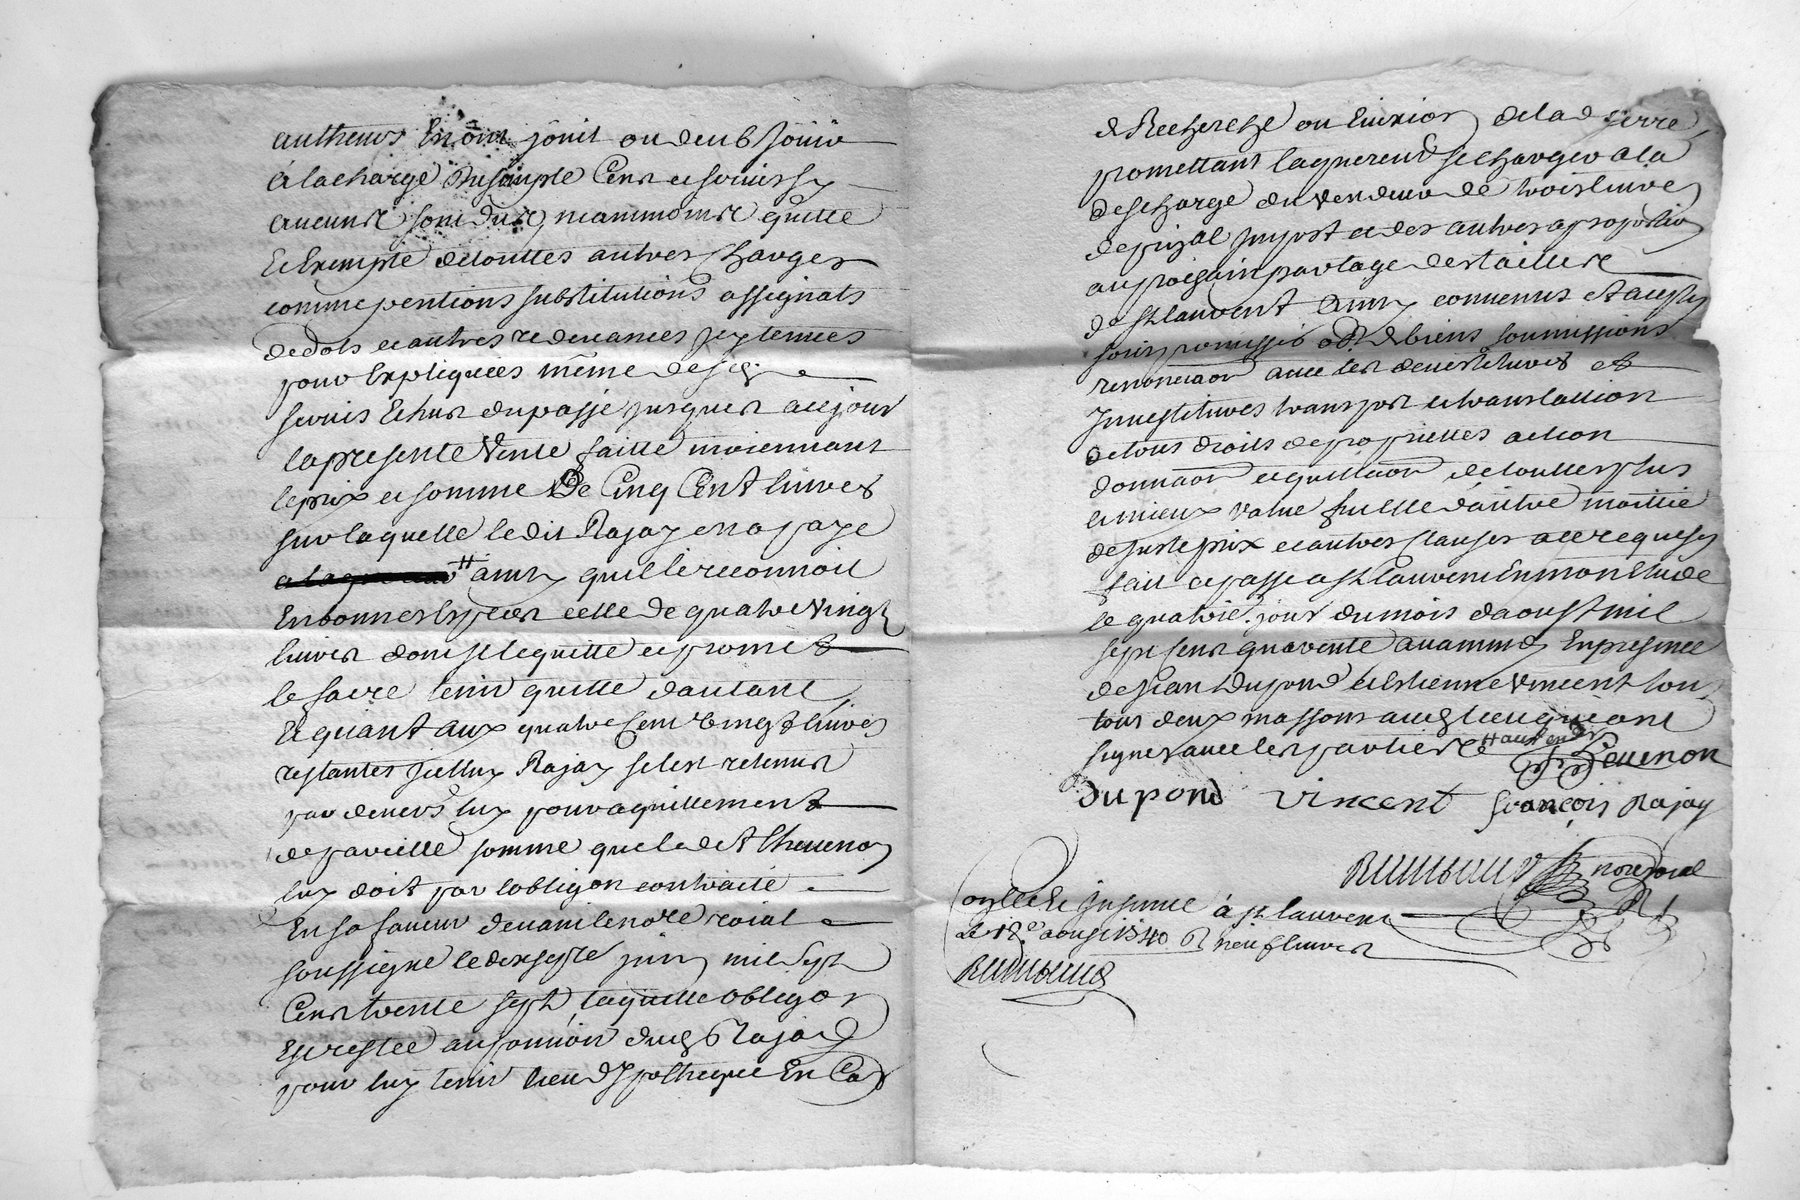 autheurs En ont joüit ou deub joüir
à la charge du simple Cens et servis sy
aucuns sont dus neammoins quitte
Et Exempte de touttes autres charges
comme pentions substitutions assignats
de dots et autres redevances icy tenues
pour Expliquées même desd
servis Echus du passé jusques a ce jour
la presente Vente faitte moiennant
le prix et somme De Cinq Cent livres
sur laquelle le dit Rajay en a paye
H aud qu'il le reconnoit
En bonnes Especes celle de quatre Vingt
livres dont il le quitte et promet
le faire tenir quitte d'autant
Et quant aux quatre Cent vingt livres
restantes icelluy Rajay se les retenus
par devers luy pour aquittement
de pareille somme que le dit Thevenon
luy doit par l'obligon contraite
En sa faveur devant le nore roial
soussigne le dixseptе juin mil sept
Cens trente sept, laquelle obligon
Est restée au pouvoir dud Rajay
pour luy tenir lieu d'ypotheque En Cas
de Recherche ou Eviction de la d terre,
promettant l'aquereur se charger a la
descharge du Vendeur de trois livres
de prizal impost et des autres a proportion
au prochain partage des tailles
de St laurent Ainsy convenus et accepté
soubs promesses obt de biens soumissions
renonciaon avec les devestitures et
Investitures transport et translation
de tous droits de proprietes action
donnaon et quittaon de touttes plus
et mieux value fut elle d'autre moitié
de juste prix et autres clauses a ce requises
fait et passé a St laurent En mon Etude
le quatrie. jour du mois d'aoust mil
sept cens quarente avant midy En presence
de Jean Dupond et Estienne Vincent
tous deux massons aud lieu qui ont
signes avec les parties H aud vendr
Thevenon
dupond Vincent françois Rajay
nore roial
Conllé et Insinué à St laurent
Le 18e aoust 1740 R neuf livres